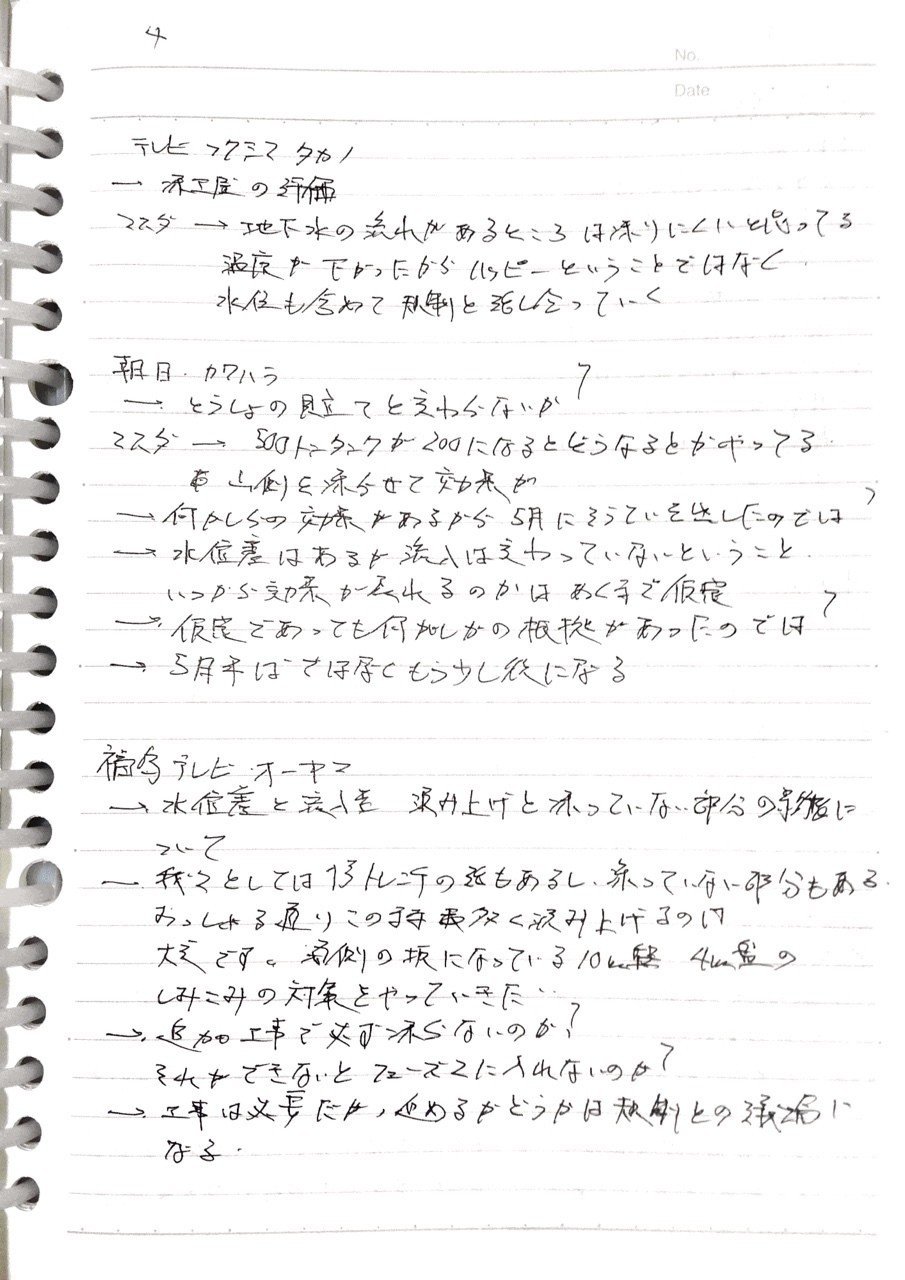 4
No.
Date
テレビ フクシマ タカノ
→ 凍土壁の評価
マスダ → 地下水の流れがあるところは凍りにくいと思ってる
温度が下がったからハッピーということではなく
水位も含めて規制と話し合っていく
朝日・カワハラ
→ とうしょの見立てと変わらないか?
マスダ → 500トンタンクが200になるとどうなるとかやってる
山側を凍らせて効果が
→ 何かしらの効果があるから5月にそうていを出したのでは?
→ 水位差はあるが流入は変わっていないということ
いつから効果が表れるのかはあくまで仮定
→ 仮定であっても何がしかの根拠があったのでは?
→ 5月半ばではなくもう少し後になる
福島テレビ・オーヤマ
→ 水位差と流入量 汲み上げと凍っていない部分の影響に
ついて
→ 我々としては トレンチの もあるし、凍っていない部分もある
おっしゃる通りこの 汲み上げるのは
大変です。海側の板になっている10m盤 4m盤の
しみこみの対策をやっていきた‥
→ 追加工事で必ず凍らないのか?
それができないとフェーズ2に入れないのか?
→ 工事は必要だが、進めるかどうかは規制との議論に
なる・